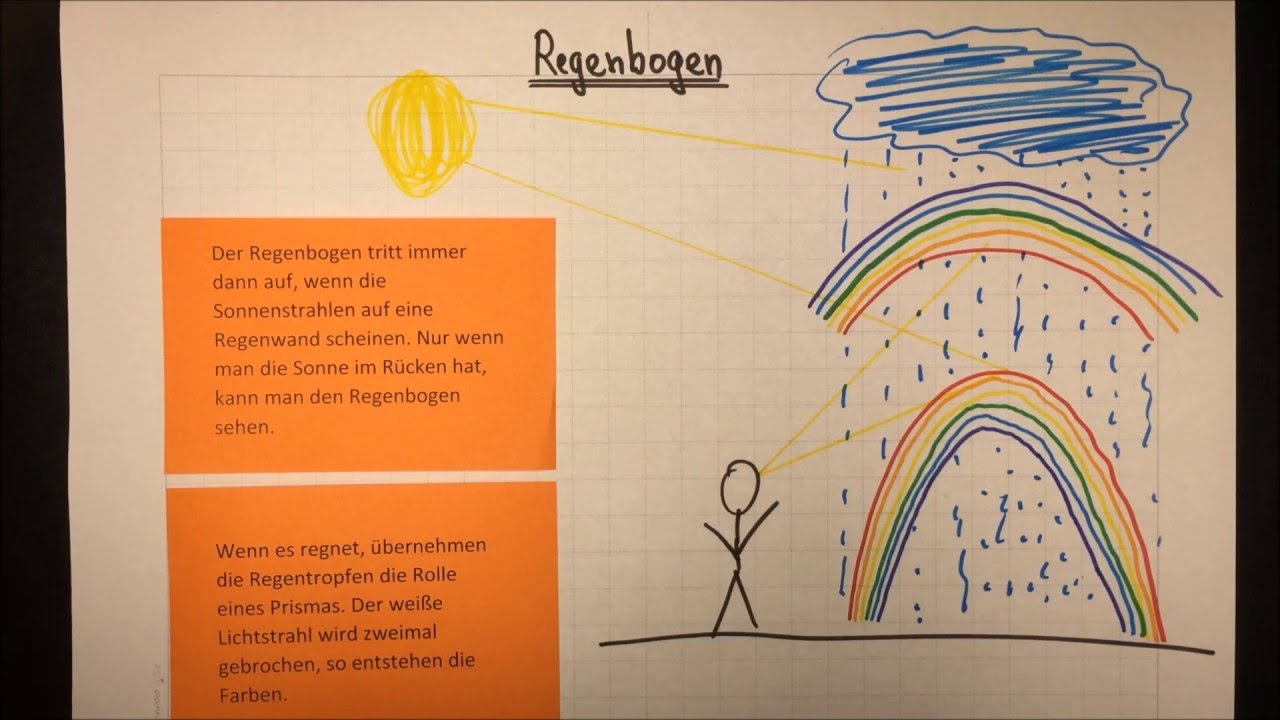 Regenbogen
Der Regenbogen tritt immer
dann auf, wenn die
Sonnenstrahlen auf eine
Regenwand scheinen. Nur wenn
man die Sonne im Rücken hat,
kann man den Regenbogen
sehen.
Wenn es regnet, übernehmen
die Regentropfen die Rolle
eines Prismas. Der weiße
Lichtstrahl wird zweimal
gebrochen, so entstehen die
Farben.